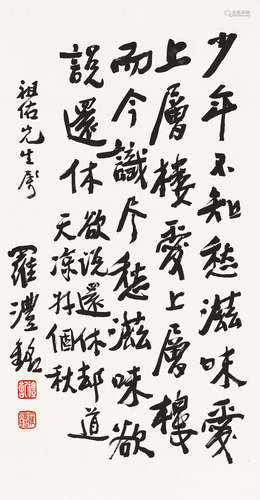 少年不知愁滋味愛
上層樓愛上層樓
而今識尽愁滋味欲
說還休
欲説還休却道
天涼好個秋
祖佑先生屬
羅澧銘